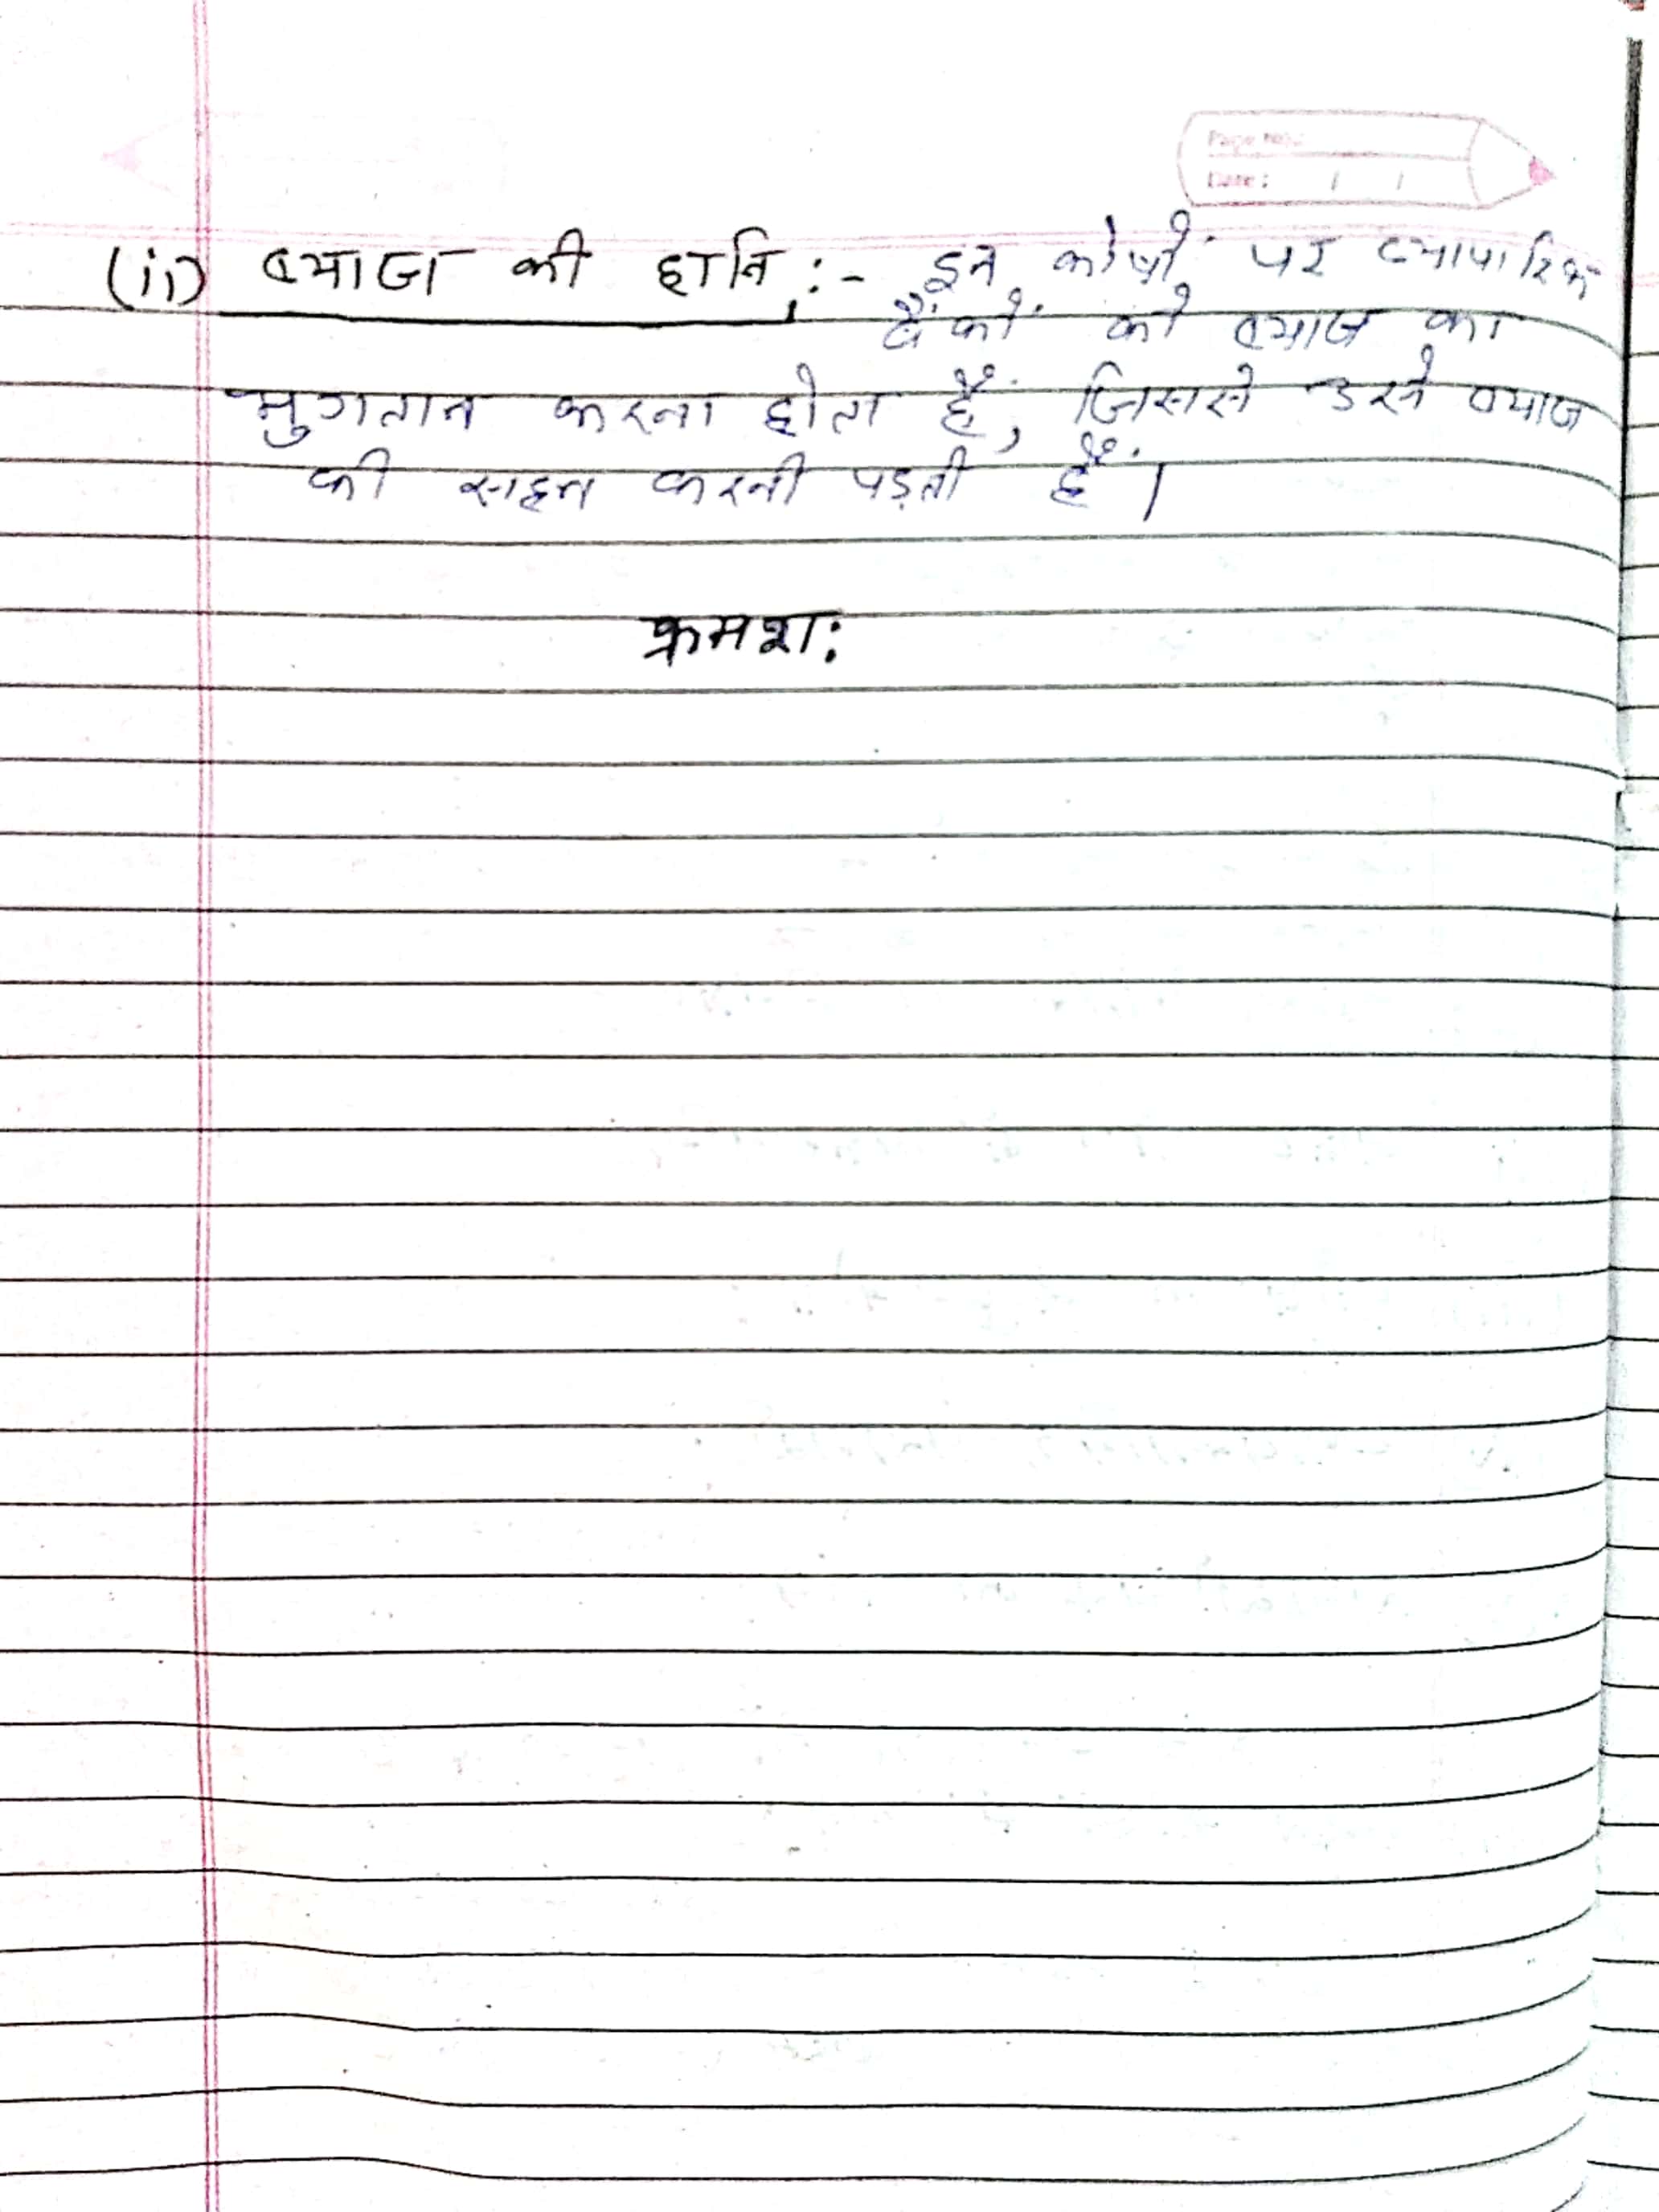 Page No.:
Date: / /
(ii) ब्याज की हानि :- इन कोषों पर व्यापारिक
बैंकों को ब्याज का
भुगतान करना होता हैं, जिससे उसे ब्याज
की सहन करनी पड़ती हैं।
क्रमश: